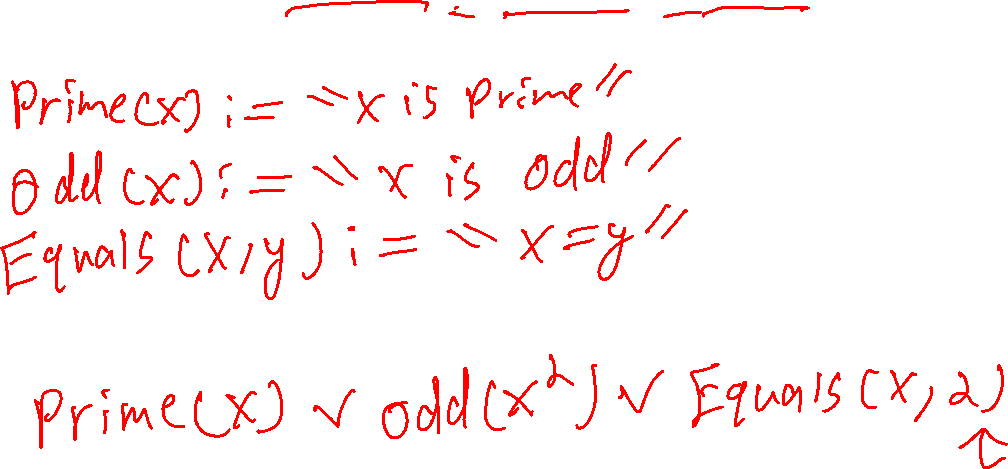 Prime(x) := "x is prime"
Odd(x) := "x is odd"
Equals(x,y) := "x=y"
Prime(x) ∨ odd(x²) ∨ Equals(x,2)